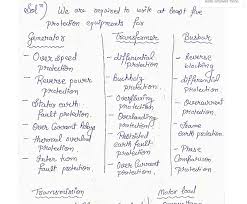 Solⁿ) We are required to write at least five
protection equipments for
Generators
→ Over speed
protection
→ Reverse power
protection
→ Stator earth
fault protection.
→ Over Current Relays
→ Thermal overload
protection
→ Inter turn
fault protection
Transformer
→ differential
protection
→ Buchholz
protection.
→ Overfluxing
protection
→ Overloading
protection
→ Restricted
earth fault
protection.
→ Over Current
protection
Busbar
→ Reverse
blocking
→ differential
protection
→ Overcurrent
protection.
→ frame earth
protection
→ Phase
Comparison
protection
Transmission
Motor load